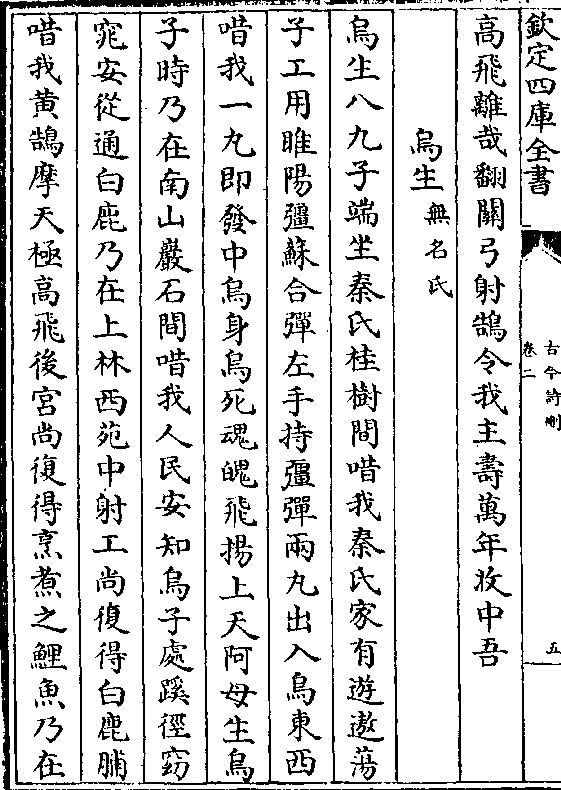 欽定四庫全書
古今詩刪
卷二
五
高飛離哉翻關弓射鵠令我主壽萬年收中吾
烏生無名氏
烏生八九子端坐秦氏桂樹間唶我秦氏家有遊遨蕩
子工用睢陽彊蘇合彈左手持彊彈兩丸出入烏東西
唶我一丸即發中烏身烏死魂魄飛揚上天阿母生烏
子時乃在南山巖石間唶我人民安知烏子處蹊徑窈
窕安從通白鹿乃在上林西苑中射工尚復得白鹿脯
唶我黃鵠摩天極高飛後宮尚復得烹煮之鯉魚乃在